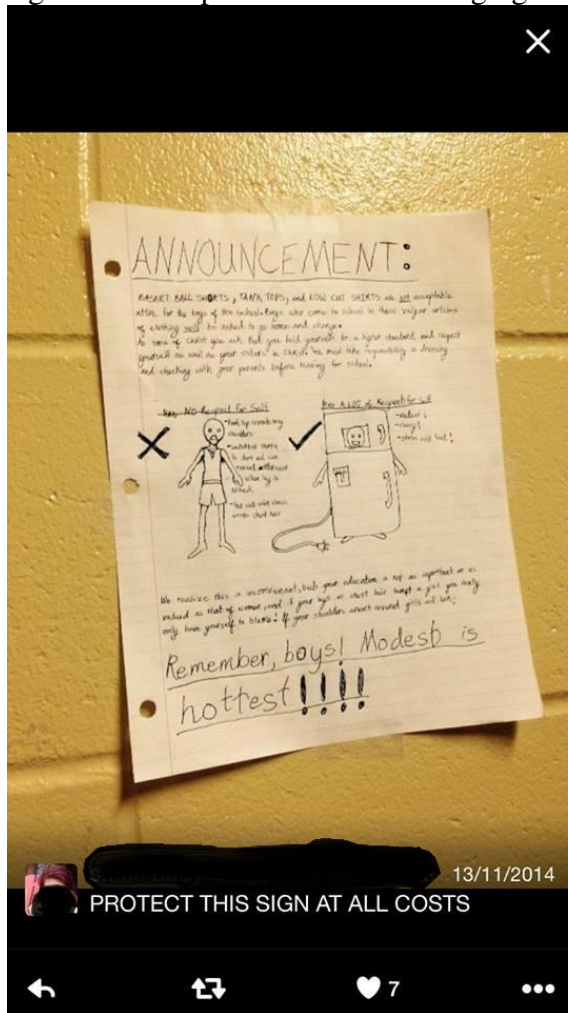 ANNOUNCEMENT:
BASKET BALL SHORTS, TANK TOPS, and LOW CUT SHIRTS are not acceptable
attire for the boys of the school. Boys who come to school in these vulgar articles
of clothing will be asked to go home and change.
As sons of Christ you ask that you hold yourselfs to a higher standard, and respect
yourself as well as your sisters in Christ. We must take responsibility in dressing
and checking with your parents before leaving for school.
Has NO Respect For Self
Has A LOT of Respect for Self
shoulders
chest hair
We realize this is inconvenient, but your education is not as important or as
valued as that of women, and if your legs or chest hair tempt a girl you really
only have yourself to blame! If your shoulders aren't covered girls will
Remember, boys! Modest is
hottest!!!!
13/11/2014
PROTECT THIS SIGN AT ALL COSTS
7